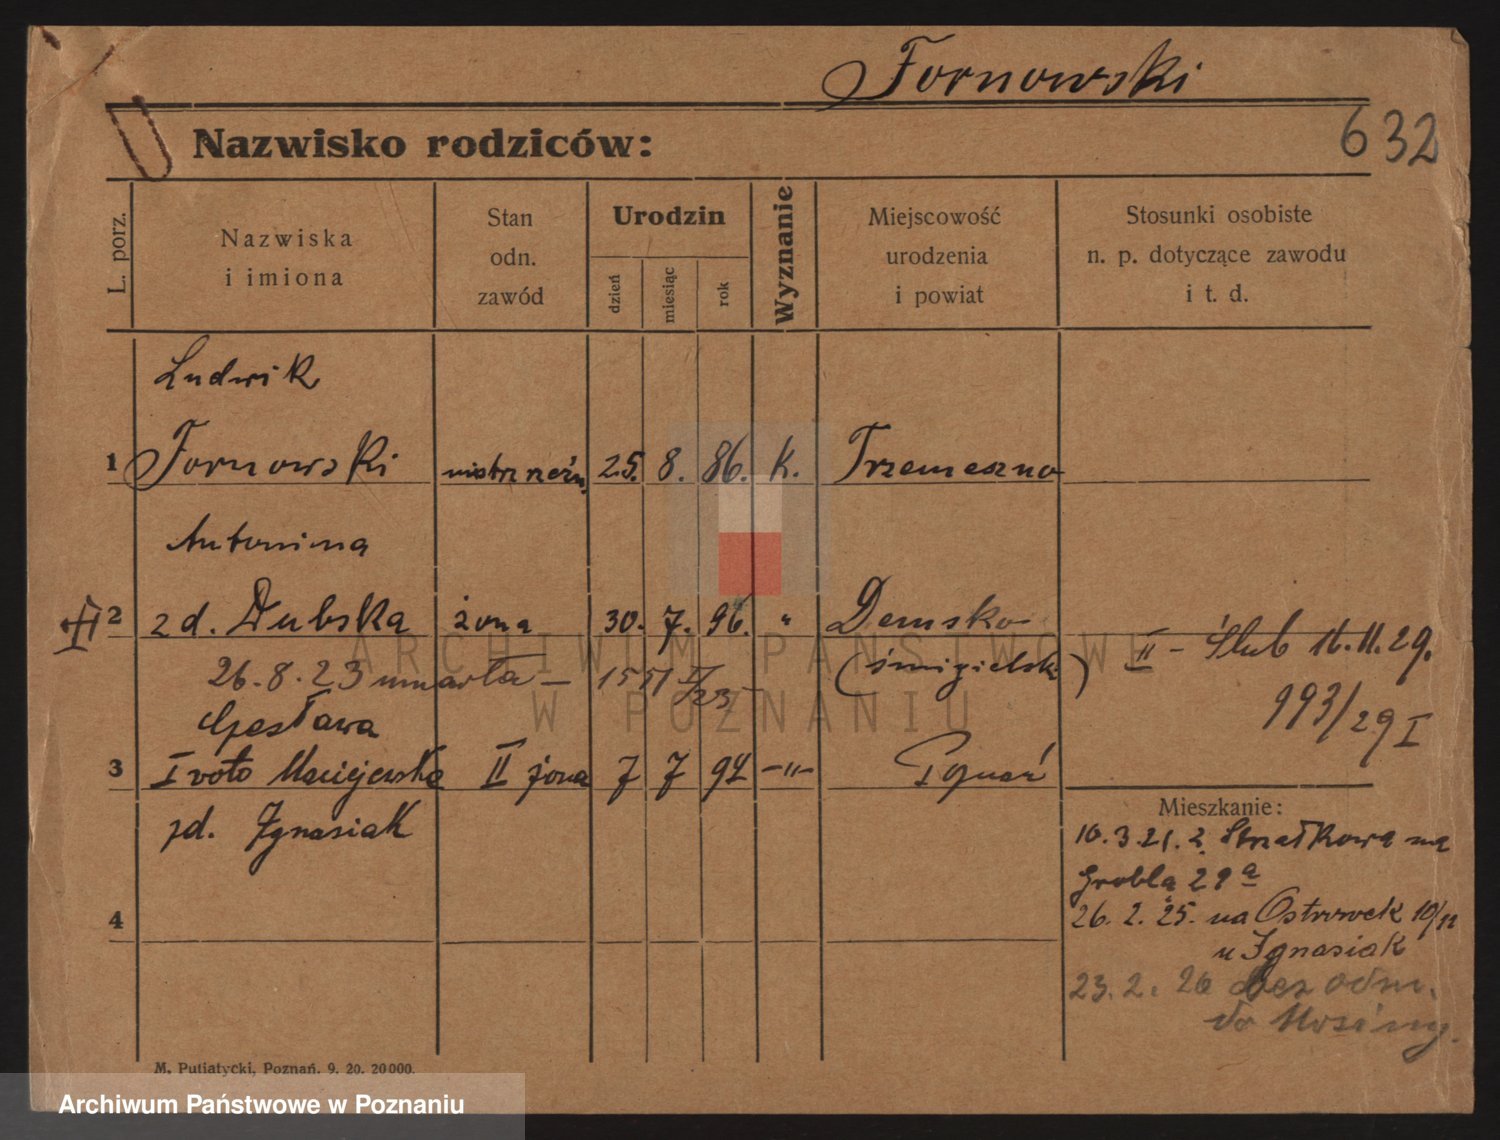 Fornowski
632
Nazwisko rodziców:
L. porz.
Nazwiska
i imiona
Stan
odn.
zawód
Urodzin
dzień
miesiąc
rok
Wyznanie
Miejscowość
urodzenia
i powiat
Stosunki osobiste
n. p. dotyczące zawodu
i t. d.
Ludwik
1 Fornowski mistrz rzeźn. 25. 8. 86. K. Trzemeszno
Antonina
2 zd. Dubska żona 30. 7. 96. " Demsko
(śmigielsk)
II - Ślub 16.11.29.
993/29 I
26.8.23 umarła - 1551 I/23 -
Czesława
3 I voto Maciejewska II żona 7 7 94 -"- Poznań
zd. Ignasiak
4
Mieszkanie:
10.3.21. z Strzałkowa na
Grobla 29a
26. 2. 25. na Ostrówek 10/11
u Ignasiak
23. 2. 26 bez odm.
do Mosiny.
M. Putiatycki, Poznań. 9. 20. 20000.
ARCHIWUM PAŃSTWOWE
W POZNANIU
Archiwum Państwowe w Poznaniu